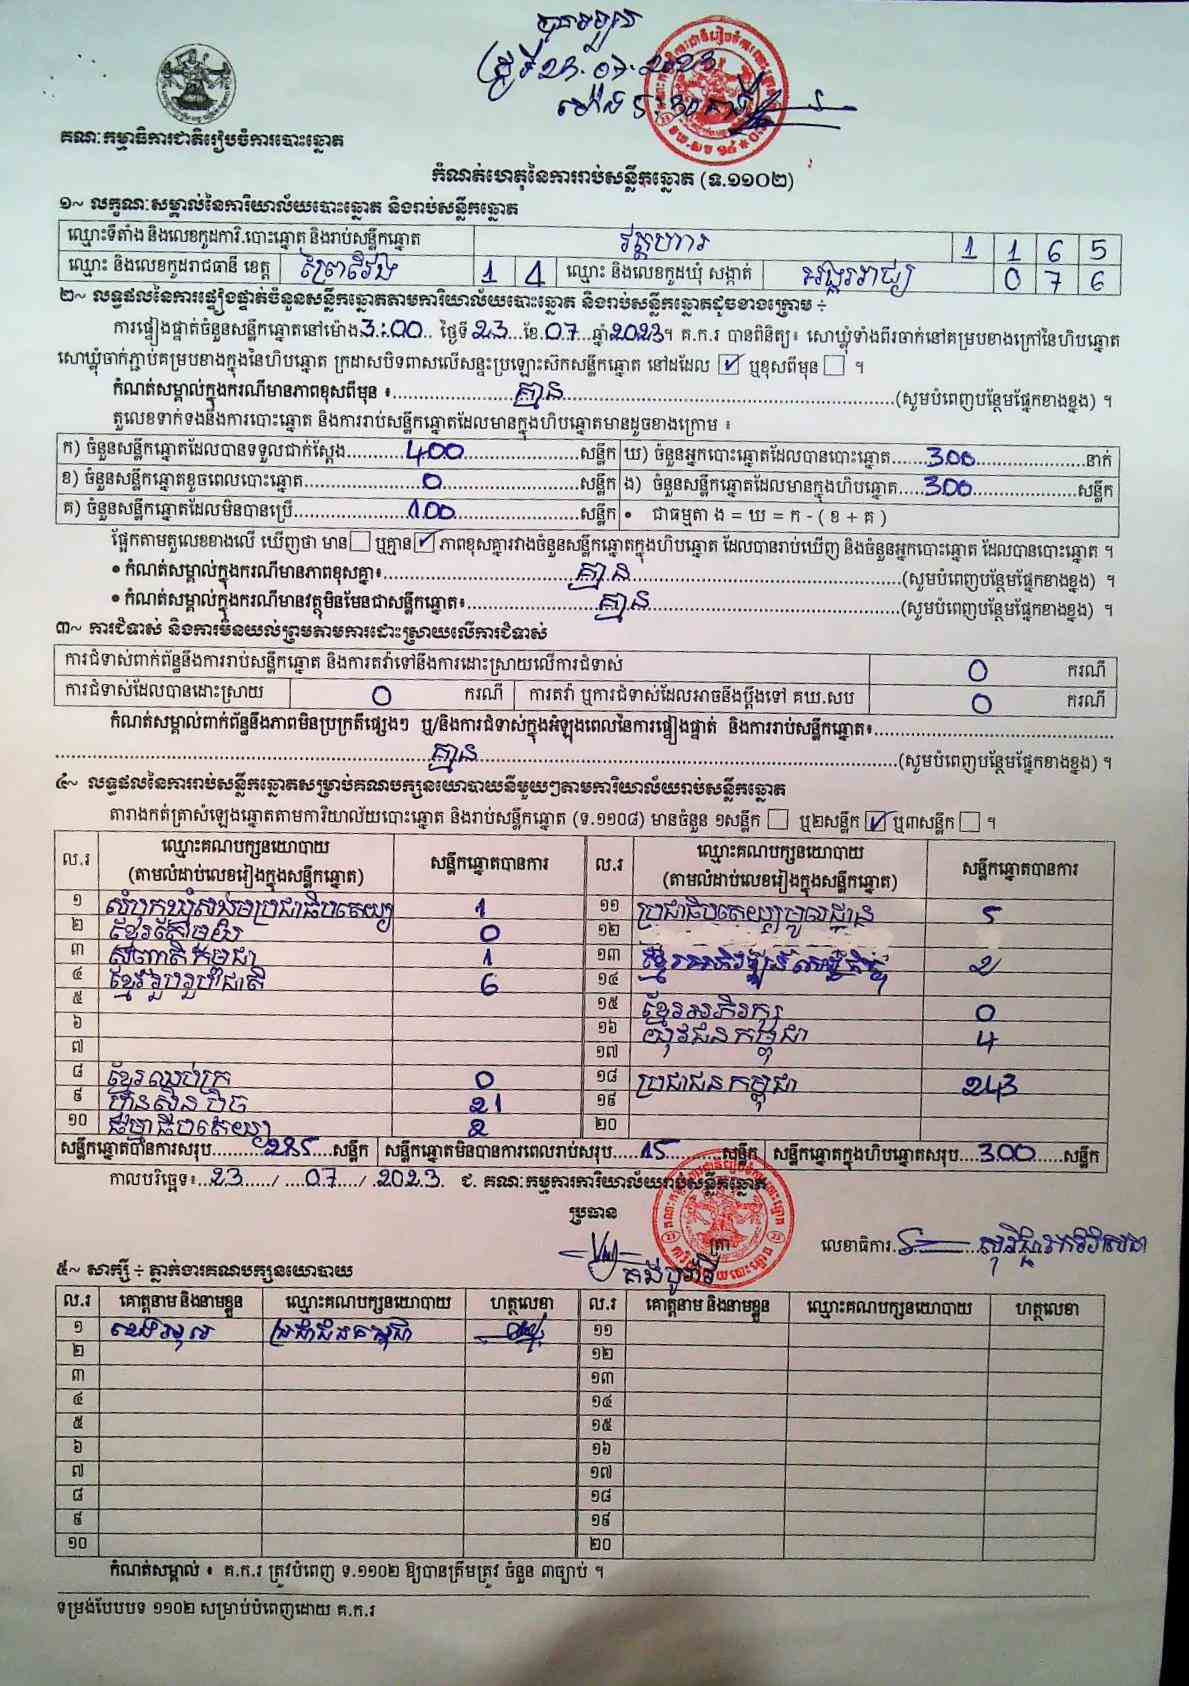 បានទទួល
ថ្ងៃទី 23.07.2023
ម៉ោង 5:30 នាទី
គណៈកម្មាធិការជាតិរៀបចំការបោះឆ្នោត
កំណត់ហេតុនៃការរាប់សន្លឹកឆ្នោត (ទ.១១០២)
១~ លក្ខណៈសម្គាល់នៃការិយាល័យបោះឆ្នោត និងរាប់សន្លឹកឆ្នោត
ឈ្មោះទីតាំង និងលេខកូដការិ.បោះឆ្នោត និងរាប់សន្លឹកឆ្នោត 1 1 6 5
ឈ្មោះ និងលេខកូដរាជធានី ខេត្ត ព្រៃវែង 1 4 ឈ្មោះ និងលេខកូដឃុំ សង្កាត់ អង្គររាជ្យ 0 7 6
២~ លទ្ធផលនៃការផ្ទៀងផ្ទាត់ចំនួនសន្លឹកឆ្នោតតាមការិយាល័យបោះឆ្នោត និងរាប់សន្លឹកឆ្នោតដូចខាងក្រោម ÷
ការផ្ទៀងផ្ទាត់ចំនួនសន្លឹកឆ្នោតនៅម៉ោង 3:00 ថ្ងៃទី 23 ខែ 07 ឆ្នាំ 2023។ គ.ក.រ បានពិនិត្យ៖ សោឃ្លុំទាំងពីរចាក់នៅគម្របខាងក្រៅនៃហិបឆ្នោត
សោឃ្លុំចាក់ភ្ជាប់គម្របខាងក្នុងនៃហិបឆ្នោត ក្រដាសបិទពាសលើសន្ទះប្រឡោះស៊កសន្លឹកឆ្នោត នៅដដែល ✓ ឬខុសពីមុន ។
កំណត់សម្គាល់ក្នុងករណីមានភាពខុសពីមុន ៖ គ្មាន (សូមបំពេញបន្ថែមផ្នែកខាងខ្នង) ។
តួលេខទាក់ទងនឹងការបោះឆ្នោត និងការរាប់សន្លឹកឆ្នោតដែលមានក្នុងហិបឆ្នោតមានដូចខាងក្រោម ៖
ក) ចំនួនសន្លឹកឆ្នោតដែលបានទទួលជាក់ស្តែង 400 សន្លឹក ឃ) ចំនួនអ្នកបោះឆ្នោតដែលបានបោះឆ្នោត 300 នាក់
ខ) ចំនួនសន្លឹកឆ្នោតខូចពេលបោះឆ្នោត 0 សន្លឹក ង) ចំនួនសន្លឹកឆ្នោតដែលមានក្នុងហិបឆ្នោត 300 សន្លឹក
គ) ចំនួនសន្លឹកឆ្នោតដែលមិនបានប្រើ 100 សន្លឹក • ជាធម្មតា ង = ឃ = ក - ( ខ + គ )
ផ្អែកតាមតួលេខខាងលើ ឃើញថា មាន ឬគ្មាន ✓ ភាពខុសគ្នារវាងចំនួនសន្លឹកឆ្នោតក្នុងហិបឆ្នោត ដែលបានរាប់ឃើញ និងចំនួនអ្នកបោះឆ្នោត ដែលបានបោះឆ្នោត ។
• កំណត់សម្គាល់ក្នុងករណីមានភាពខុសគ្នា៖ គ្មាន (សូមបំពេញបន្ថែមផ្នែកខាងខ្នង) ។
• កំណត់សម្គាល់ក្នុងករណីមានវត្ថុមិនមែនជាសន្លឹកឆ្នោត៖ គ្មាន (សូមបំពេញបន្ថែមផ្នែកខាងខ្នង) ។
៣~ ការជំទាស់ និងការមិនយល់ព្រមតាមការដោះស្រាយលើការជំទាស់
ការជំទាស់ពាក់ព័ន្ធនឹងការរាប់សន្លឹកឆ្នោត និងការតវ៉ាទៅនឹងការដោះស្រាយលើការជំទាស់ 0 ករណី
ការជំទាស់ដែលបានដោះស្រាយ 0 ករណី ការតវ៉ា ឬការជំទាស់ដែលអាចនឹងប្តឹងទៅ គឃ.សប 0 ករណី
កំណត់សម្គាល់ពាក់ព័ន្ធនឹងភាពមិនប្រក្រតីផ្សេងៗ ឬ/និងការជំទាស់ក្នុងអំឡុងពេលនៃការផ្ទៀងផ្ទាត់ និងការរាប់សន្លឹកឆ្នោត៖
គ្មាន (សូមបំពេញបន្ថែមផ្នែកខាងខ្នង) ។
៤~ លទ្ធផលនៃការរាប់សន្លឹកឆ្នោតសម្រាប់គណបក្សនយោបាយនីមួយៗតាមការិយាល័យរាប់សន្លឹកឆ្នោត
តារាងកត់ត្រាសំឡេងឆ្នោតតាមការិយាល័យបោះឆ្នោត និងរាប់សន្លឹកឆ្នោត (ទ.១១០៨) មានចំនួន ១សន្លឹក ឬ២សន្លឹក ✓ ឬ៣សន្លឹក ។
ល.រ ឈ្មោះគណបក្សនយោបាយ (តាមលំដាប់លេខរៀងក្នុងសន្លឹកឆ្នោត) សន្លឹកឆ្នោតបានការ ល.រ ឈ្មោះគណបក្សនយោបាយ (តាមលំដាប់លេខរៀងក្នុងសន្លឹកឆ្នោត) សន្លឹកឆ្នោតបានការ
១ សំបុកឃ្មុំសង្គមប្រជាធិបតេយ្យ 1 ១១ ប្រជាធិបតេយ្យមូលដ្ឋាន 5
២ ខ្មែរតែមួយ 0 ១២
៣ សញ្ជាតិកម្ពុជា 1 ១៣ ខ្មែរអភិវឌ្ឍន៍សេដ្ឋកិច្ច 2
៤ ខ្មែររួបរួមជាតិ 6 ១៤
៥ ១៥ ខ្មែរអភិរក្ស 0
៦ ១៦ យុវជនកម្ពុជា 4
៧ ១៧
៨ ខ្មែរឈប់ក្រ 0 ១៨ ប្រជាជនកម្ពុជា 243
៩ ហ៊្វុនស៊ិនប៉ិច 21 ១៩
១០ ធម្មាធិបតេយ្យ 2 ២០
សន្លឹកឆ្នោតបានការសរុប 285 សន្លឹក សន្លឹកឆ្នោតមិនបានការពេលរាប់សរុប 15 សន្លឹក សន្លឹកឆ្នោតក្នុងហិបឆ្នោតសរុប 300 សន្លឹក
កាលបរិច្ឆេទ៖ 23 / 07 / 2023 ជ. គណៈកម្មការការិយាល័យរាប់សន្លឹកឆ្នោត
ប្រធាន
ត្រា លេខាធិការ
៥~ សាក្សី ÷ ភ្នាក់ងារគណបក្សនយោបាយ
ល.រ គោត្តនាម និងនាមខ្លួន ឈ្មោះគណបក្សនយោបាយ ហត្ថលេខា ល.រ គោត្តនាម និងនាមខ្លួន ឈ្មោះគណបក្សនយោបាយ ហត្ថលេខា
១ ប្រជាជនកម្ពុជា ១១
២ ១២
៣ ១៣
៤ ១៤
៥ ១៥
៦ ១៦
៧ ១៧
៨ ១៨
៩ ១៩
១០ ២០
កំណត់សម្គាល់ ៖ គ.ក.រ ត្រូវបំពេញ ទ.១១០២ ឱ្យបានត្រឹមត្រូវ ចំនួន ៣ច្បាប់ ។
ទម្រង់បែបបទ ១១០២ សម្រាប់បំពេញដោយ គ.ក.រ